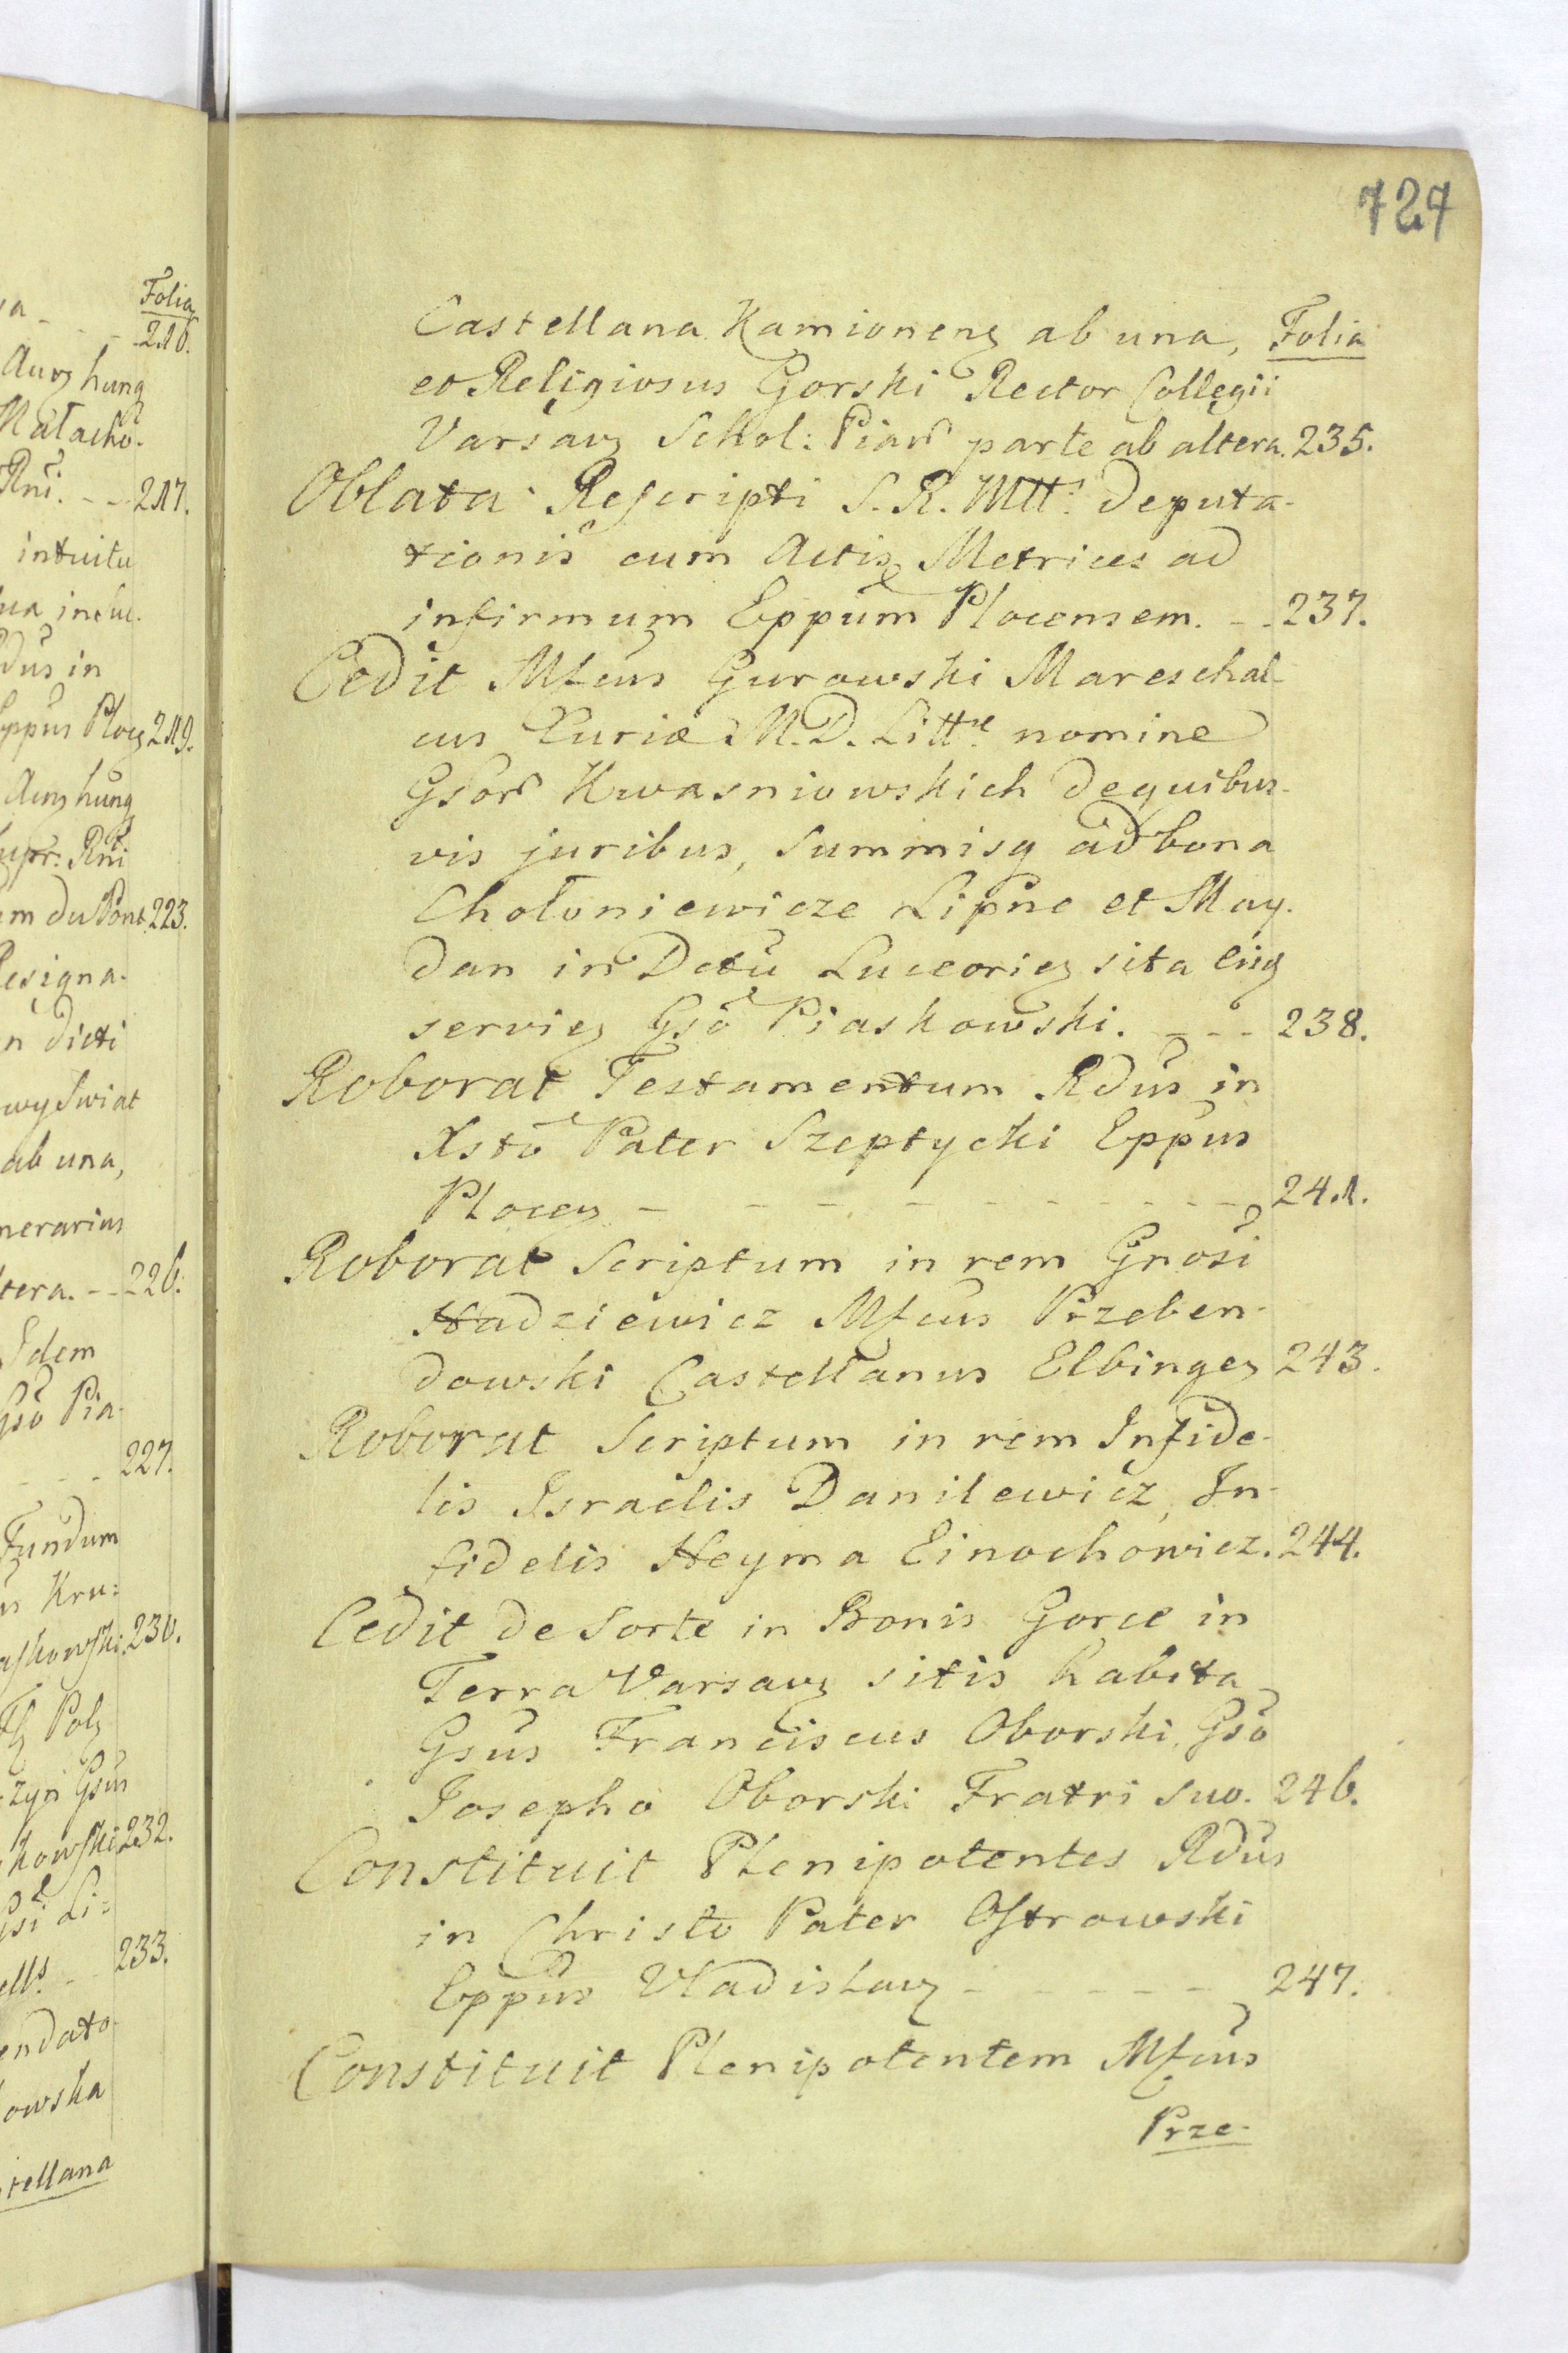 727
Castellana Kamionens ab una, Folia
et Religiosus Gorski Rector Collegii
Varsavs Schol: Piar parte ab altera. 235.
Oblata Rescripti S. R. Mtt: deputa-
tionis cum Actis Metrices ad
infirmum Eppum Plocensem. - - 237.
Cedit Mfcus Gurowski Mareschal-
cus Curiæ M. D. Littæ nomine
Gsor Kwasniowskich de quibus-
vis juribus, summisq ad bona
Chołoniewicze Lipne et May-
dan in Dctu Luceories sita eiq
servies Gso Piaskowski. - - - 238.
Roborat Testamentum Rdus in
Xsto Pater Szeptycki Eppus
Ploces - - - - - - - - 241.
Roborat Scriptum in rem Gnosi
Hadziewicz Mfcus Przeben-
dowski Castellanus Elbinges 243.
Roborat Scriptum in rem Infide-
lis Israelis Danilewicz, In-
fidelis Heyma Einochowicz. 244.
Cedit de Sorte in Bonis Gorce in
Terra Varsavs sitis habita
Gsus Franciscus Oborski, Gso
Josepho Oborski Fratri suo. 246.
Constituit Plenipotentes Rdus
in Christo Pater Ostrowski
Eppus Vladislavs - - - - - 247.
Constituit Plenipotentem Mfcus
Prze-
Folia
216.
217.
intuitu
dus in
Eppus Plocs 219.
223.
Resigna-
n dicti
wy Swiat
ab una,
nerarius
tera. - - 226.
Gso Pia-
- - - 227.
Fundum
230.
232.
233.
endato
owska
tellana